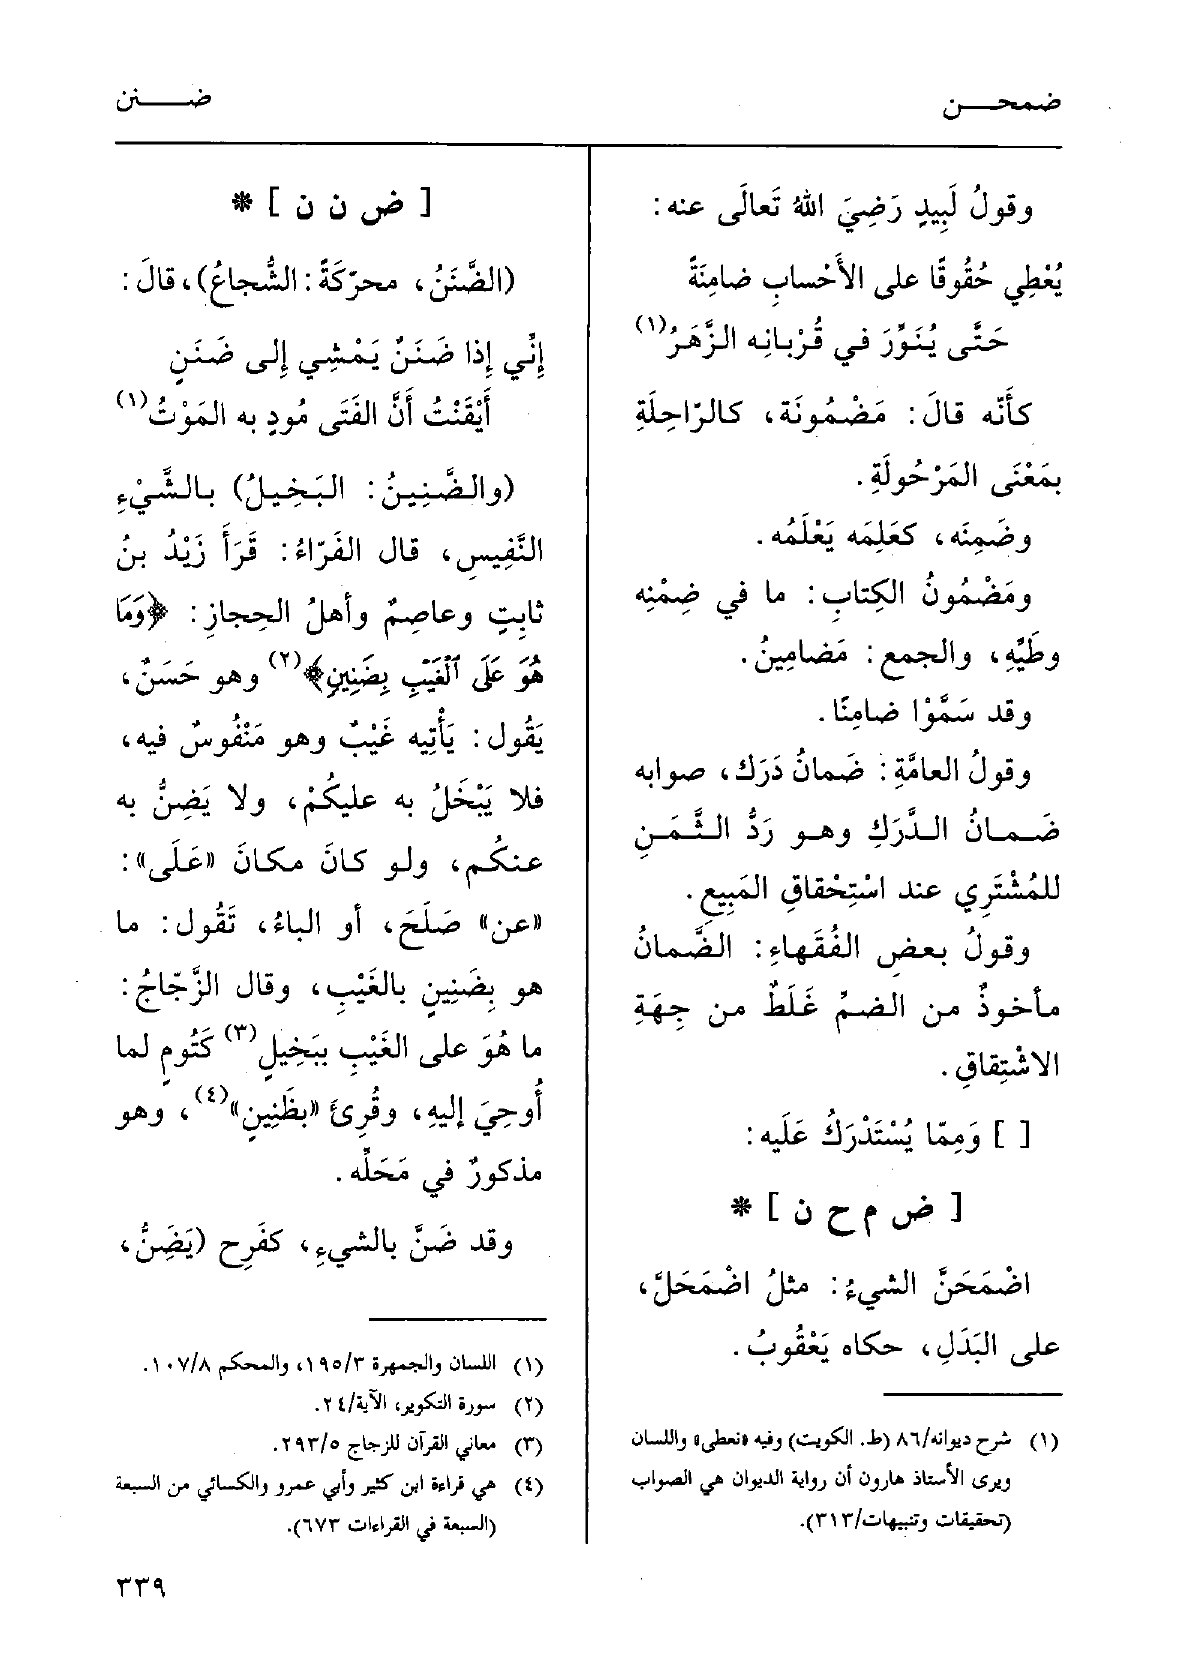 ضمحـــن
ضـــنن
وقولُ لَبِيدٍ رَضِيَ اللهُ تَعالَى عنه:
يُعْطِي حُقُوقًا على الأَحْسابِ ضامِنَةً
حَتَّى يُنَوِّرَ في قُرْبانِه الزَّهَرُ(١)
كأنّه قالَ: مَضْمُونَة، كالرّاحِلَةِ
بمَعْنَى المَرْحُولَةِ.
وضَمِنَه، كعَلِمَه يَعْلَمُه.
ومَضْمُونُ الكِتابِ: ما في ضِمْنِه
وطَيِّهِ، والجمع: مَضامِينُ.
وقد سَمَّوْا ضامِنًا.
وقولُ العامَّةِ: ضَمانُ دَرَك، صوابه
ضَـمـانُ الـدَّرَكِ وهـو رَدُّ الـثَّـمَـنِ
للمُشْتَرِي عند اسْتِحْقاقِ المَبِيعِ.
وقولُ بعضِ الفُقَهاءِ: الضَّمانُ
مأخوذٌ من الضمِّ غَلَطٌ من جِهَةِ
الاشْتِقاقِ.
[ ] وَمِمّا يُسْتَدْرَكُ عَلَيه:
[ ض م ح ن ] *
اضْمَحَنَّ الشيءُ: مثلُ اضْمَحَلَّ،
على البَدَلِ، حكاه يَعْقُوبُ.
(١) شرح ديوانه/٨٦ (ط. الكويت) وفيه «نعطى» واللسان
ويرى الأستاذ هارون أن رواية الديوان هي الصواب
(تحقيقات وتنبيهات/٣١٣).
[ ض ن ن ] *
(الضَّنَنُ، محرّكَةً: الشُّجاعُ)، قالَ:
إِنِّي إِذا ضَنَنٌ يَمْشِي إِلى ضَنَنٍ
أَيْقَنْتُ أَنَّ الفَتَى مُودٍ به المَوْتُ(١)
(والضَّنِينُ: البَخِيلُ) بالشَّيْءِ
النَّفِيسِ، قال الفَرّاءُ: قَرَأَ زَيْدُ بنُ
ثابِتٍ وعاصِمٌ وأهلُ الحِجازِ: ﴿وَمَا
هُوَ عَلَى ٱلْغَيْبِ بِضَنِينٍ﴾(٢) وهو حَسَنٌ،
يَقُول: يَأْتِيه غَيْبٌ وهو مَنْفُوسٌ فيه،
فلا يَبْخَلُ به عليكُمْ، ولا يَضِنُّ به
عنكُم، ولو كانَ مكانَ «عَلَى»:
«عن» صَلَحَ، أو الباءُ، تَقُول: ما
هو بِضَنِينٍ بالغَيْبِ، وقال الزَّجّاجُ:
ما هُوَ على الغَيْبِ ببَخِيلٍ(٣) كَتُومٍ لما
أُوحِيَ إليهِ، وقُرِئَ «بظَنِينٍ»(٤)، وهو
مذكورٌ في مَحَلِّه.
وقد ضَنَّ بالشيءِ، كفَرِح (يَضَنُّ،
(١) اللسان والجمهرة ١٩٥/٣، والمحكم ١٠٧/٨.
(٢) سورة التكوير، الآية/٢٤.
(٣) معاني القرآن للزجاج ٢٩٣/٥.
(٤) هي قراءة ابن كثير وأبي عمرو والكسائي من السبعة
(السبعة في القراءات ٦٧٣).
٣٣٩